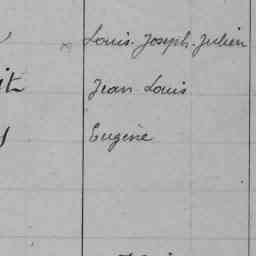 Louis-Joseph-Julien
it Jean Louis
Eugène